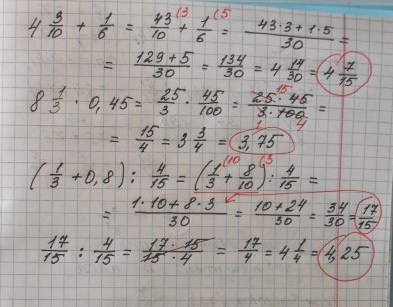 4 3/10 + 1/6 = 43/10 (3 + 1/6 (5 = 43·3 + 1·5/30 =
= 129+5/30 = 134/30 = 4 14/30 = 4 7/15
8 1/3 · 0,45 = 25/3 · 45/100 = 25 · 45 15/3 · 100 1 4 =
= 15/4 = 3 3/4 = 3,75
(1/3 + 0,8) : 4/15 = (1/3 (10 + 8/10 (3) : 4/15 =
= 1·10+8·3/30 = 10+24/30 = 34/30 = 17/15
17/15 : 4/15 = 17 · 15/15 · 4 = 17/4 = 4 1/4 = 4,25